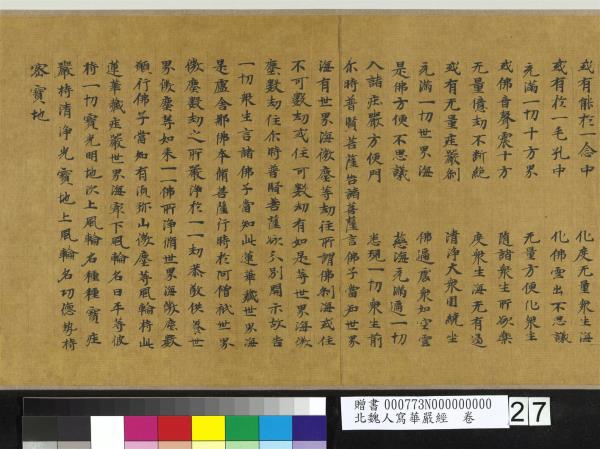 或有能於一念中　化度无量衆生海
或有於一毛孔中　化佛雲出不思議
充滿一切十方界　无量方便化衆生
或佛音聲震十方　隨諸衆生所欲樂
无量億劫不斷絶　度衆生海无有邊
或有无量莊嚴刹　清淨大衆圍繞坐
充滿一切世界海　佛遍處衆如空雲
是佛方便不思議　慈海充滿遍一切
入諸莊嚴方便門　悉現一切衆生前
尒時普賢菩薩告諸菩薩言佛子當知世界
海有世界海微塵等劫住所謂佛刹海或住
不可數劫或住可數劫有如是等世界海微
塵數劫住尒時普賢菩薩欲分別開示故告
一切衆生言諸佛子當知此蓮華藏世界海
是盧舍那佛本脩菩薩行時於阿僧祇世界
微塵數劫之所嚴淨於一一劫恭敬供養世
界微塵等如来一一佛所淨脩世界海微塵數
願行佛子當知有湏弥山微塵等風輪持此
蓮華藏莊嚴世界海最下風輪名曰平等彼
持一切寶光明地次上風輪名種種寶莊
嚴持清淨光寶地上風輪名功德勢持
密寶地
贈書 000773N000000000
北魏人寫華嚴經 卷
27